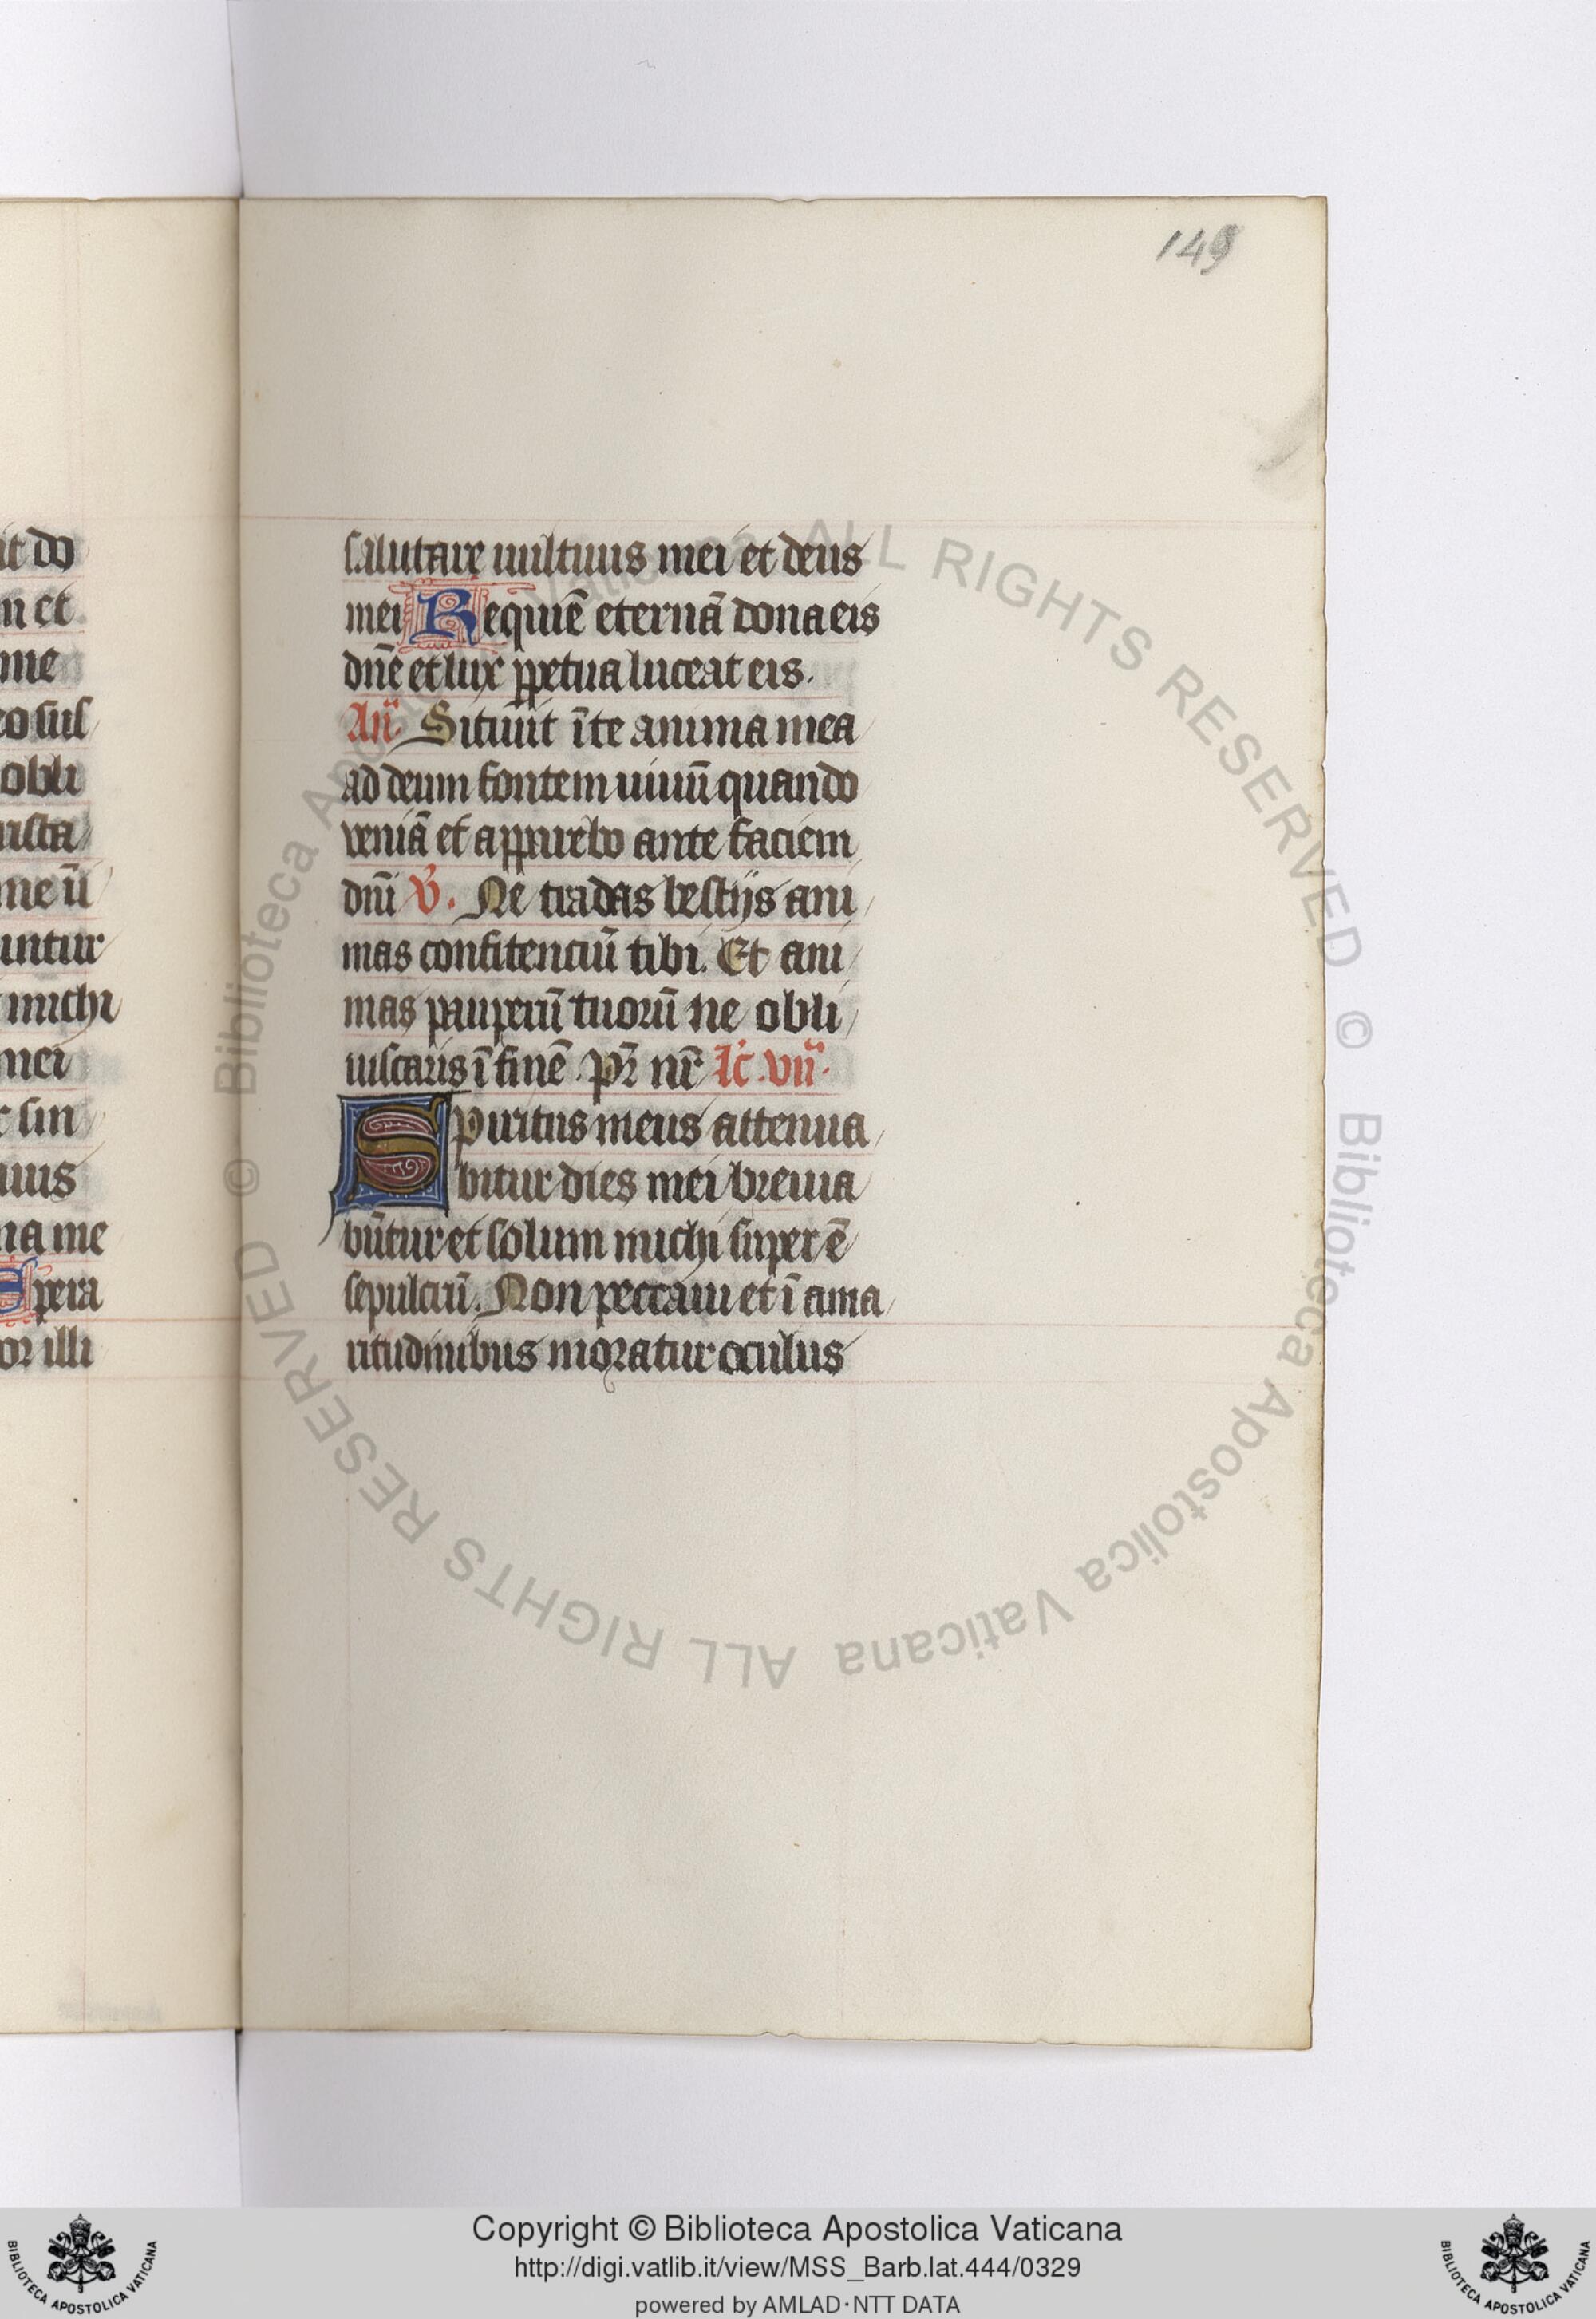 149
it do
m et
me
eo sus
obli
uista
me ū
untur
michi
mei
r sin
uus
na me
Spera
or illi
salutare uultuus mei et deus
mei Requiē eternā dona eis
dn̄e et lux ꝑpetua luceat eis.
An̄ Sitiuit ī te anima mea
ad deum fontem uiuū quando
veniā et apparebo ante faciem
dn̄i V̄. Ne tradas bestijs ani
mas confitenciū tibi. Et ani
mas pauperū tuorū ne obli
uiscaris ī finē. pr̄ nr̄ lc̄. vii.
Spiritus meus attenua
bitur dies mei breuia
būtur et solum michi super ē
sepulcrū. Non peccaui et ī ama
ritudinibus moratur oculus
© Biblioteca Apostolica Vaticana ALL RIGHTS RESERVED
© Biblioteca Apostolica Vaticana ALL RIGHTS RESERVED
Copyright © Biblioteca Apostolica Vaticana
http://digi.vatlib.it/view/MSS_Barb.lat.444/0329
powered by AMLAD·NTT DATA
BIBLIOTECA APOSTOLICA VATICANA
BIBLIOTECA APOSTOLICA VATICANA